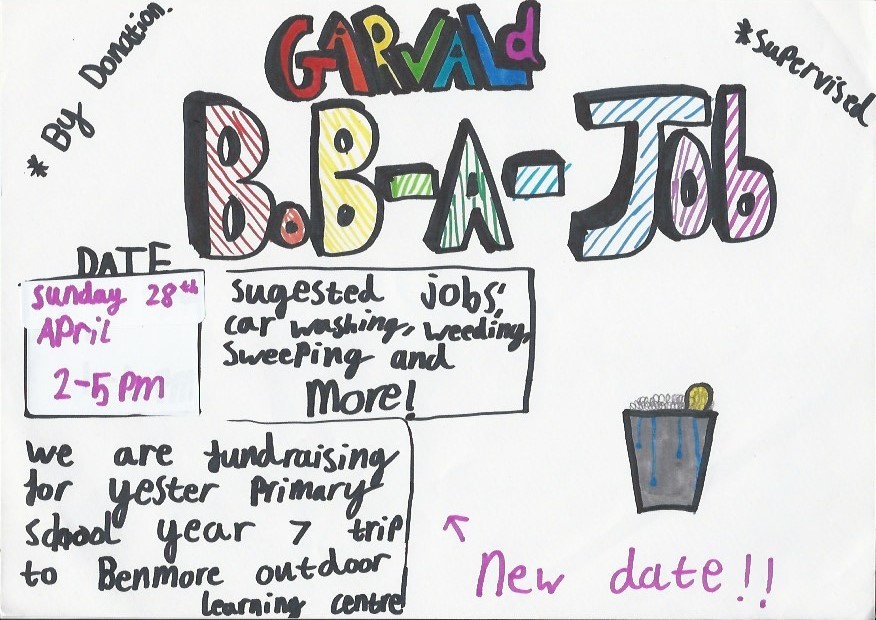 * By Donation.
GARVALd
* Supervised
BoB-A-Job
DATE
Sunday 28th
April
2-5 pm
sugested jobs;
car washing, weeding,
sweeping and
More!
we are fundraising
for yester Primary
school year 7 trip
to Benmore outdoor
learning centre
New date!!